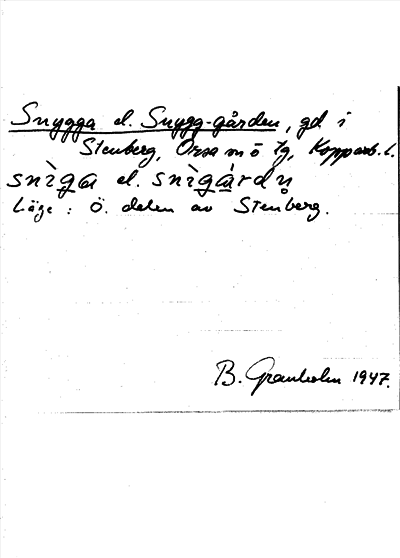 Snygga el. Snygg-gården, gd i
Stenberg, Orsa m o tg, Kopparb. l.
snìga el. snìgårdn̥
Läge: Ö. delen av Stenberg.
B. Granholm 1947.